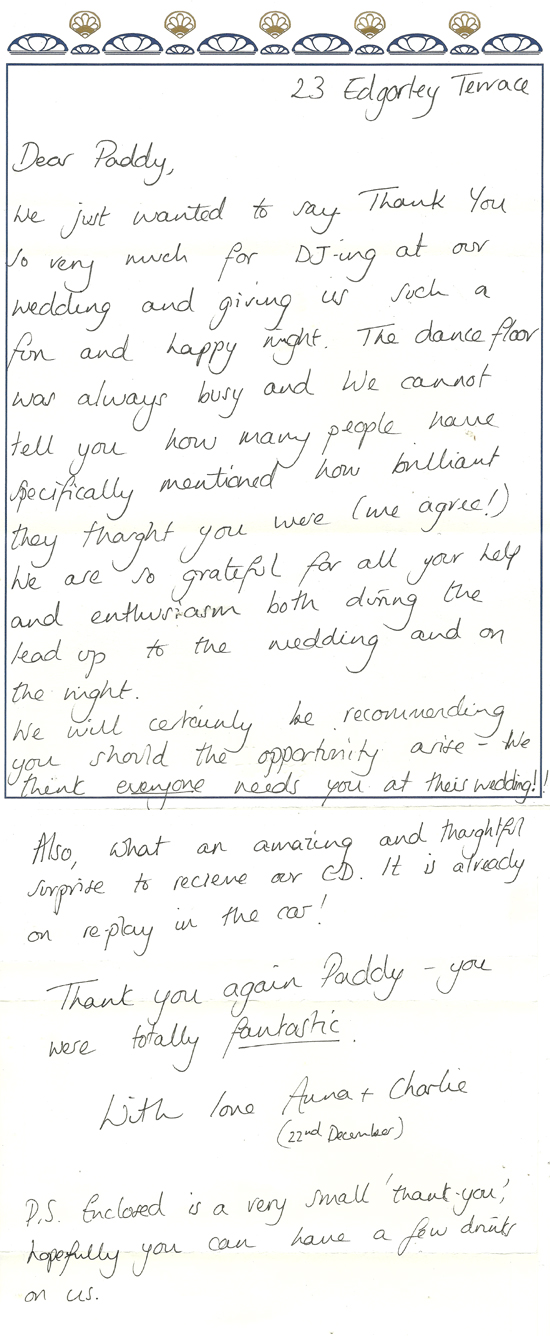 23 Edgarley Terrace
Dear Paddy,
We just wanted to say Thank You
so very much for DJ-ing at our
wedding and giving us such a
fun and happy night. The dance floor
was always busy and we cannot
tell you how many people have
specifically mentioned how brilliant
they thought you were (we agree!)
We are so grateful for all your help
and enthusiasm both during the
lead up to the wedding and on
the night.
We will certainly be recommending
you should the opportunity arise - We
think everyone needs you at their wedding!!
Also, what an amazing and thoughtful
surprise to recieve our CD. It is already
on re-play in the car!
Thank you again Paddy - you
were totally fantastic.
With love Anna + Charlie
(22nd December)
P.S. Enclosed is a very small 'thank-you',
hopefully you can have a few drinks
on us.